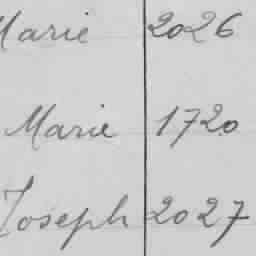 Marie 2026
Marie 1720
Joseph 2027